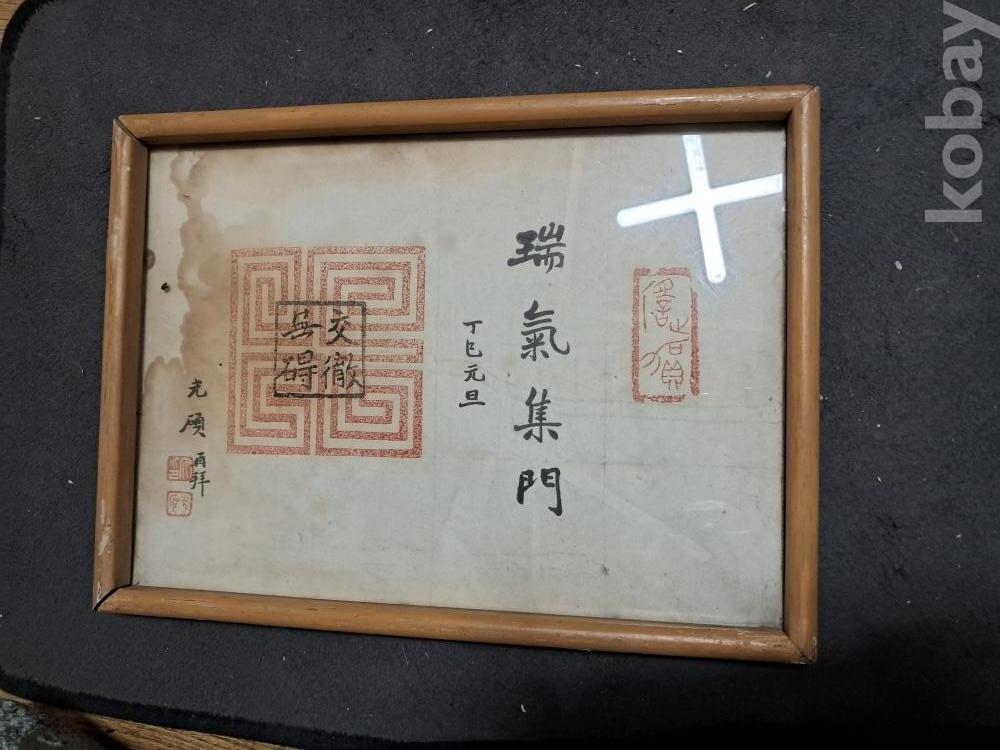 瑞氣集門
丁巳元旦
交徹
無碍
再拜
kobay